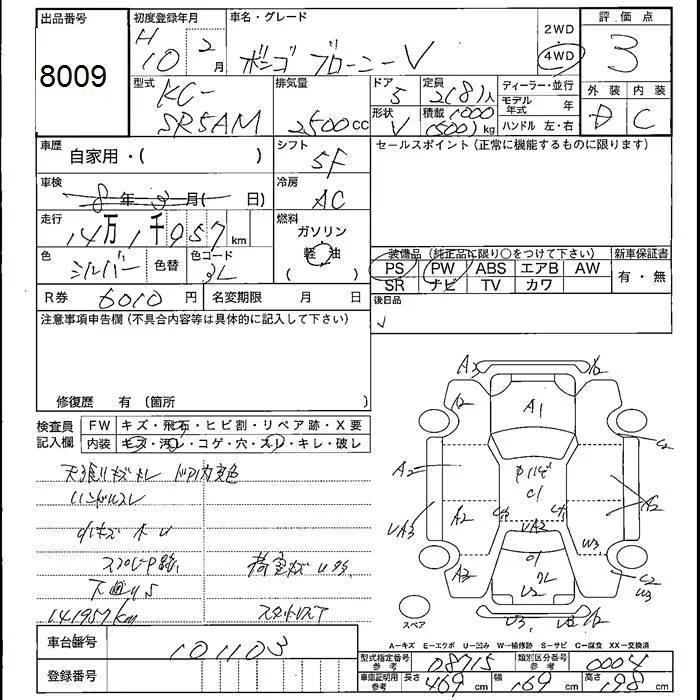 出品番号 初度登録年月 車名・グレード 2WD 評価点
8009 H10 2月 ボンゴ ブローニーV 4WD 3
型式 KC-SR5AM 排気量 2500cc ドア 5 定員 2(8)人 ディーラー・並行 外装 内装
形状 V 積載 1000 (500)kg モデル年式 年 D C
ハンドル 左・右
車歴 自家用・( ) シフト 5F セールスポイント(正常に機能するものに限ります)
車検 8年 月( 日) 冷房 AC
走行 14万1千957km 燃料 ガソリン
軽油
( )
色 シルバー 色替 色コード 装備品(純正品に限り○をつけて下さい) 新車保証書
PS PW ABS エアB AW 有・無
SR ナビ TV カワ
R券 6010円 名変期限 月 日 後日品
注意事項申告欄(不具合内容等は具体的に記入して下さい)
修復歴 有 〔箇所 〕
検査員記入欄 FW キズ・飛石・ヒビ割・リペア跡・X要
内装 キズ・汚レ・コゲ・穴・スレ・キレ・破レ
A3 A2
A2 A1
C2
A2 C1 A2
UA3 A2 UA2 W3
A3 U2 C2
W3
U3 A2
141957km スタットレスT
スペア
A=キズ E=エクボ U=凹み W=補修跡 S=サビ C=腐食 XX=交換済
車台番号 101103
登録番号
型式指定番号 参考 08715 類別区分番号 参考 0004
車庫証明用 参考 長さ 469cm 幅 169cm 高さ 198cm